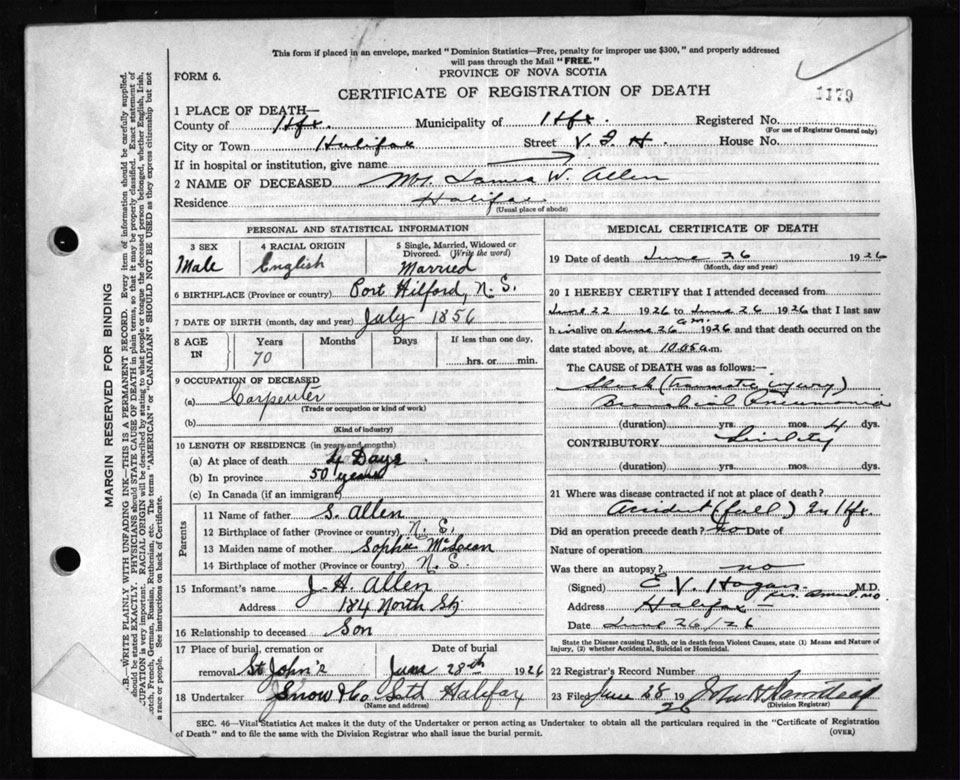 This form if placed in an envelope, marked "Dominion Statistics—Free, penalty for improper use $300," and properly addressed
will pass through the Mail "FREE."
FORM 6.
PROVINCE OF NOVA SCOTIA
CERTIFICATE OF REGISTRATION OF DEATH
1179
1 PLACE OF DEATH—
County of Hfx. Municipality of Hfx. Registered No.
(For use of Registrar General only)
City or Town Halifax Street V. G. H. House No.
If in hospital or institution, give name
2 NAME OF DECEASED Mr. James W. Allen
Residence Halifax
(Usual place of abode)
PERSONAL AND STATISTICAL INFORMATION
3 SEX Male
4 RACIAL ORIGIN English
5 Single, Married, Widowed or Divorced. (Write the word) Married
6 BIRTHPLACE (Province or country) Port Hilford, N. S.
7 DATE OF BIRTH (month, day and year) July 1856
8 AGE IN Years 70 Months Days If less than one day, hrs. or min.
9 OCCUPATION OF DECEASED
(a) Carpenter
(Trade or occupation or kind of work)
(b)
(Kind of industry)
10 LENGTH OF RESIDENCE (in years and months)
(a) At place of death 4 Days
(b) In province 50 years
(c) In Canada (if an immigrant)
Parents
11 Name of father S. Allen
12 Birthplace of father (Province or country) N. S.
13 Maiden name of mother Sophia
14 Birthplace of mother (Province or country) N. S.
15 Informant's name J. H. Allen
Address 184 North St
16 Relationship to deceased Son
17 Place of burial, cremation or removal St John's
Date of burial June 28th 1926
18 Undertaker Snow & Co Ltd Halifax
(Name and address)
MEDICAL CERTIFICATE OF DEATH
19 Date of death June 26 1926
(Month, day and year)
20 I HEREBY CERTIFY that I attended deceased from
June 22 1926 to June 26 1926 that I last saw
him alive on June 26 a.m. 1926 and that death occurred on
date stated above, at 10.05 a.m.
The CAUSE of DEATH was as follows:—
Shock (traumatic injury)
Bronchial Pneumonia
(duration) yrs. mos. 4 dys.
CONTRIBUTORY Senility
(duration) yrs. mos. dys.
21 Where was disease contracted if not at place of death?
Accident (fall) In Hfx.
Did an operation precede death? no Date of
Nature of operation
Was there an autopsy? no
(Signed) E. V. Hogan M.D.
Address Halifax
Date June 26/26
State the Disease causing Death, or in death from Violent Causes, state (1) Means and Nature of
Injury, (2) whether Accidental, Suicidal or Homicidal.
22 Registrar's Record Number
23 Filed June 28 1926
(Division Registrar)
SEC. 46—Vital Statistics Act makes it the duty of the Undertaker or person acting as Undertaker to obtain all the particulars required in the "Certificate of Registration
of Death" and to file the same with the Division Registrar who shall issue the burial permit.
(OVER)
MARGIN RESERVED FOR BINDING
B.—WRITE PLAINLY WITH UNFADING INK—THIS IS A PERMANENT RECORD. Every item of information should be carefully supplied.
should be stated EXACTLY. PHYSICIANS should STATE CAUSE OF DEATH in plain terms, so that it may be properly classified. Exact statement of
CUPATION is very important. RACIAL ORIGIN will be described by stating to what people or tongue the deceased person belonged, whether English, Irish,
cotch, French, German, Russian, Ruthenian, etc. The terms "AMERICAN" or "CANADIAN" SHOULD NOT BE USED as they express citizenship but not
a race or people. See instructions on back of Certificate.